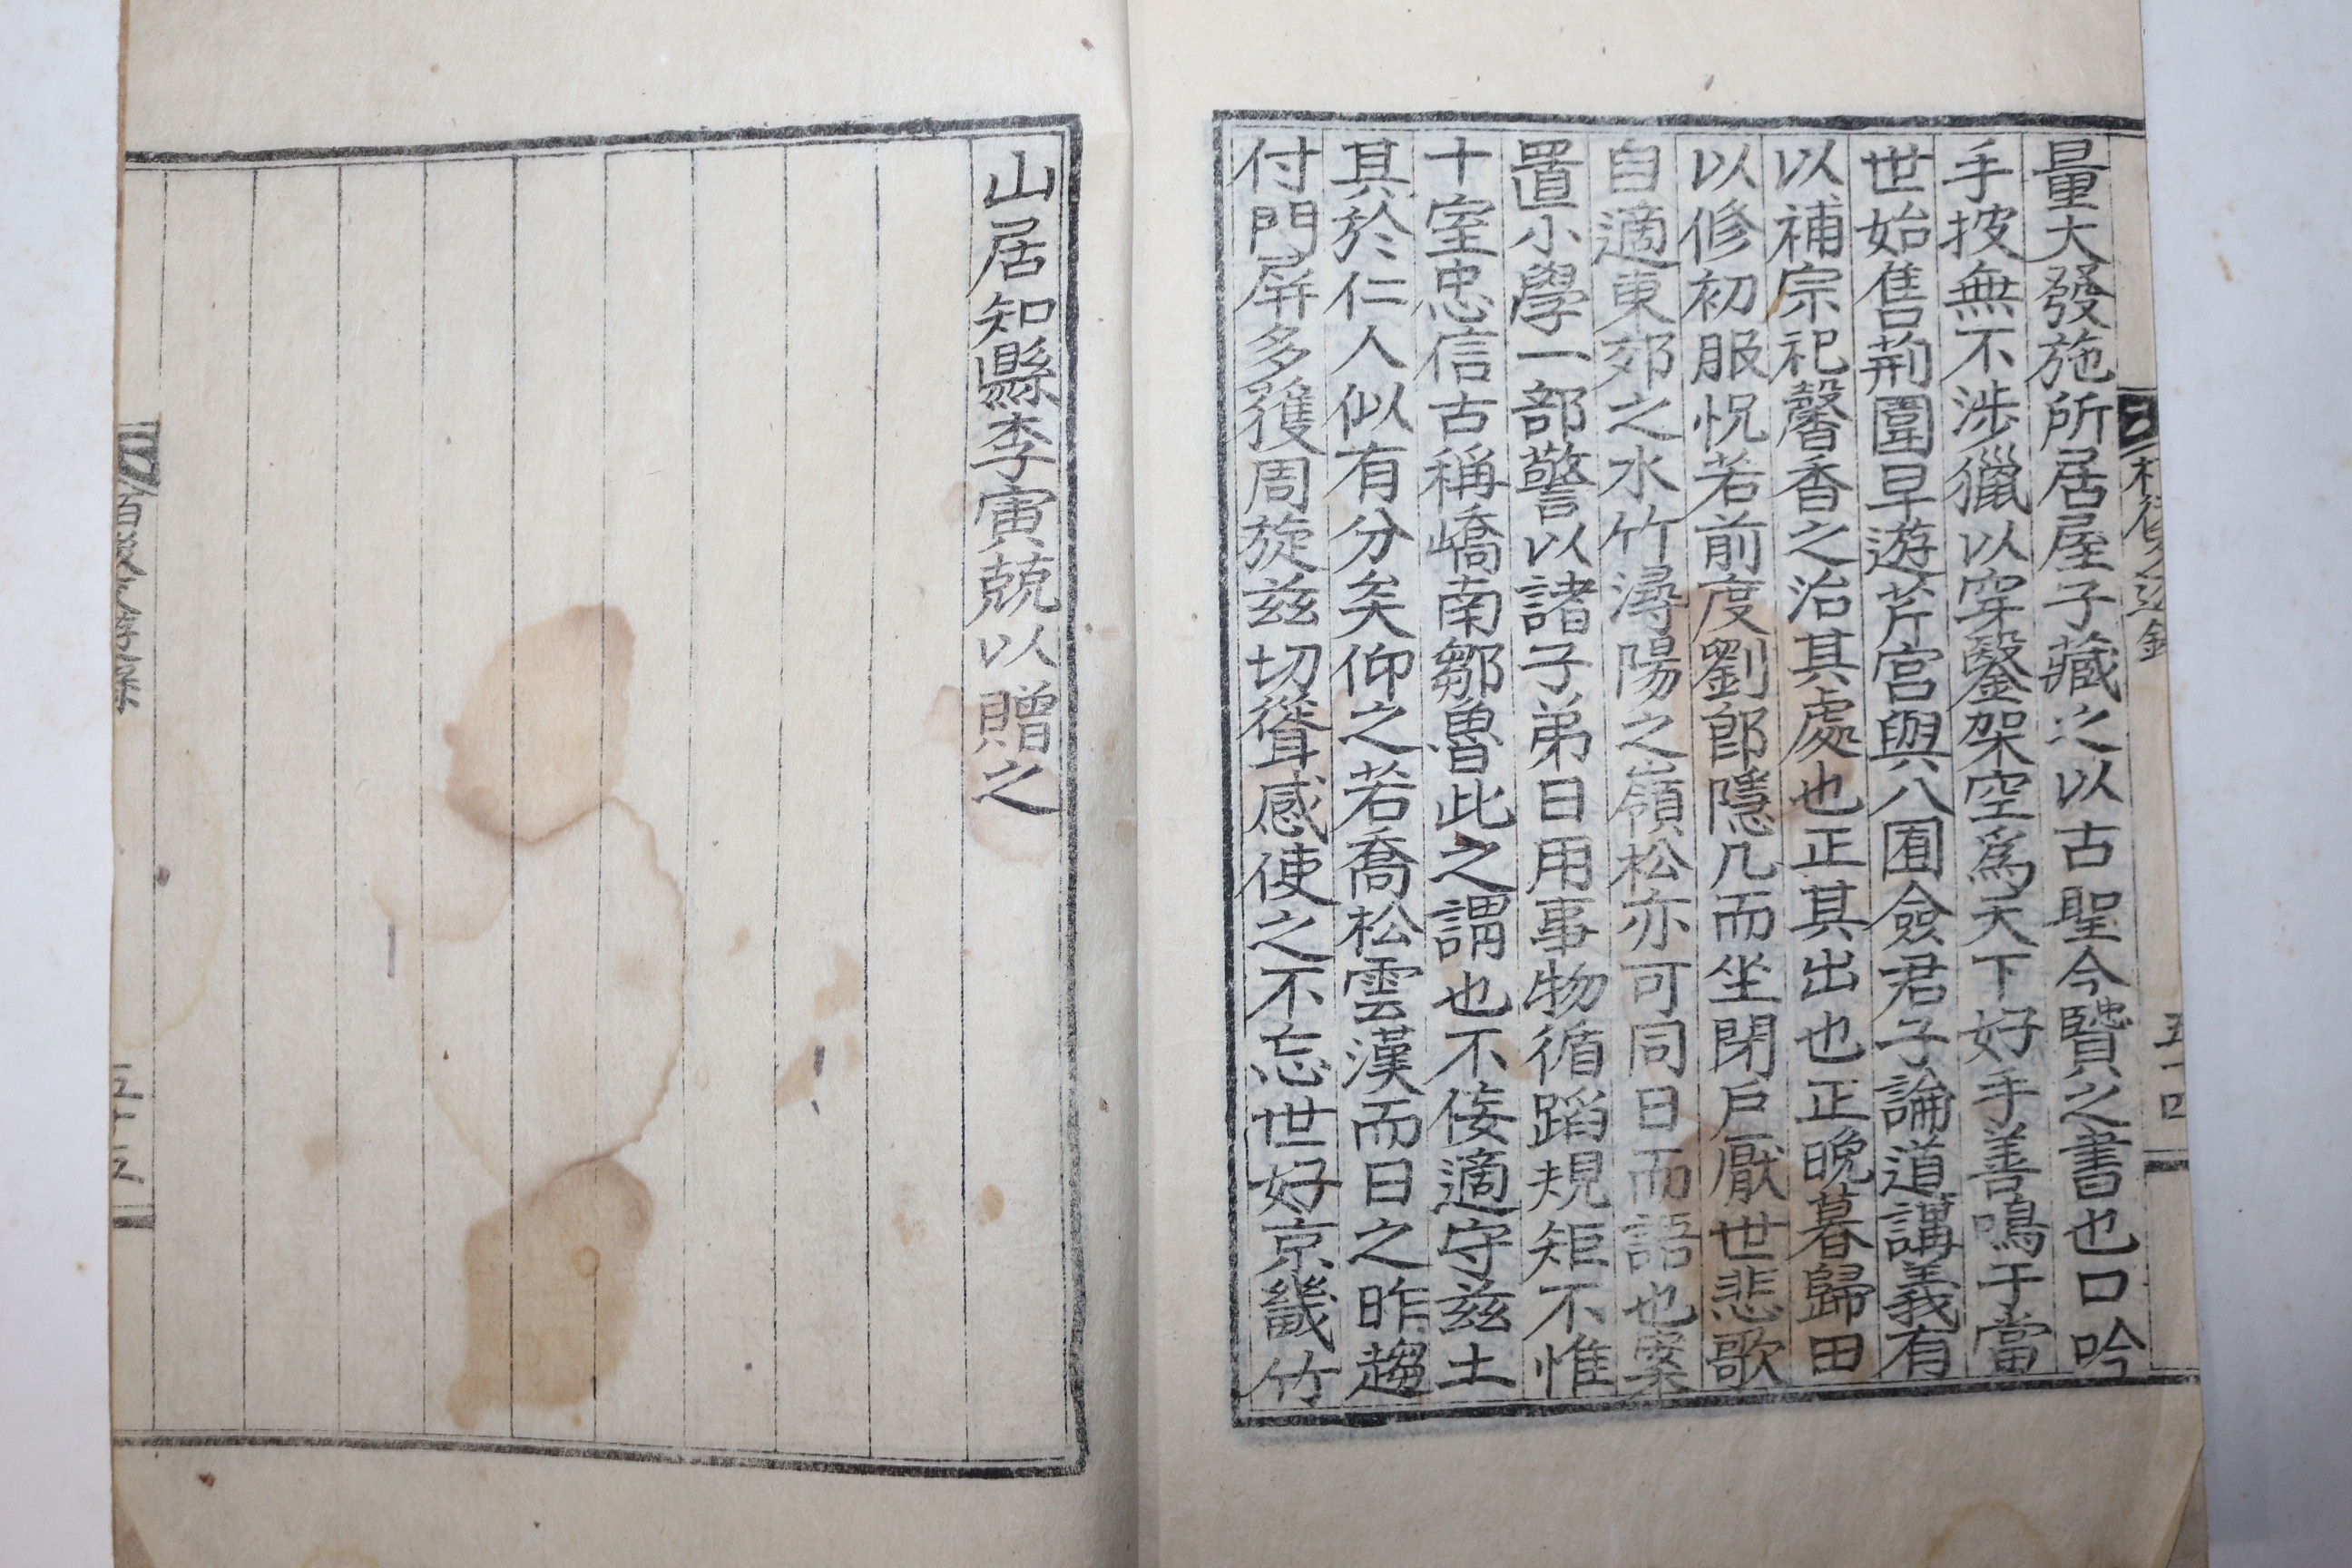 量大發施所居屋子藏之以古聖今賢之書也口吟
手披無不涉獵以穿鑿架空爲天下好手善鳴于當
世始售荊圍早遊芹宮與八囿僉君子論道講義有
以補宗祀馨香之治其處也正其出也正晩暮歸田
以修初服怳若前度劉郎隱几而坐閉戶厭世悲歌
自適東郊之水竹潯陽之嶺松亦可同日而語也案
置小學一部警以諸子弟日用事物循蹈規矩不惟
十室忠信古稱嶠南鄒魯此之謂也不佞適守玆土
其於仁人似有分矣仰之若喬松雲漢而日之昨趨
付門屏多獲周旋玆切聳感使之不忘世好京畿竹
五十四
山居知縣李寅兢以贈之